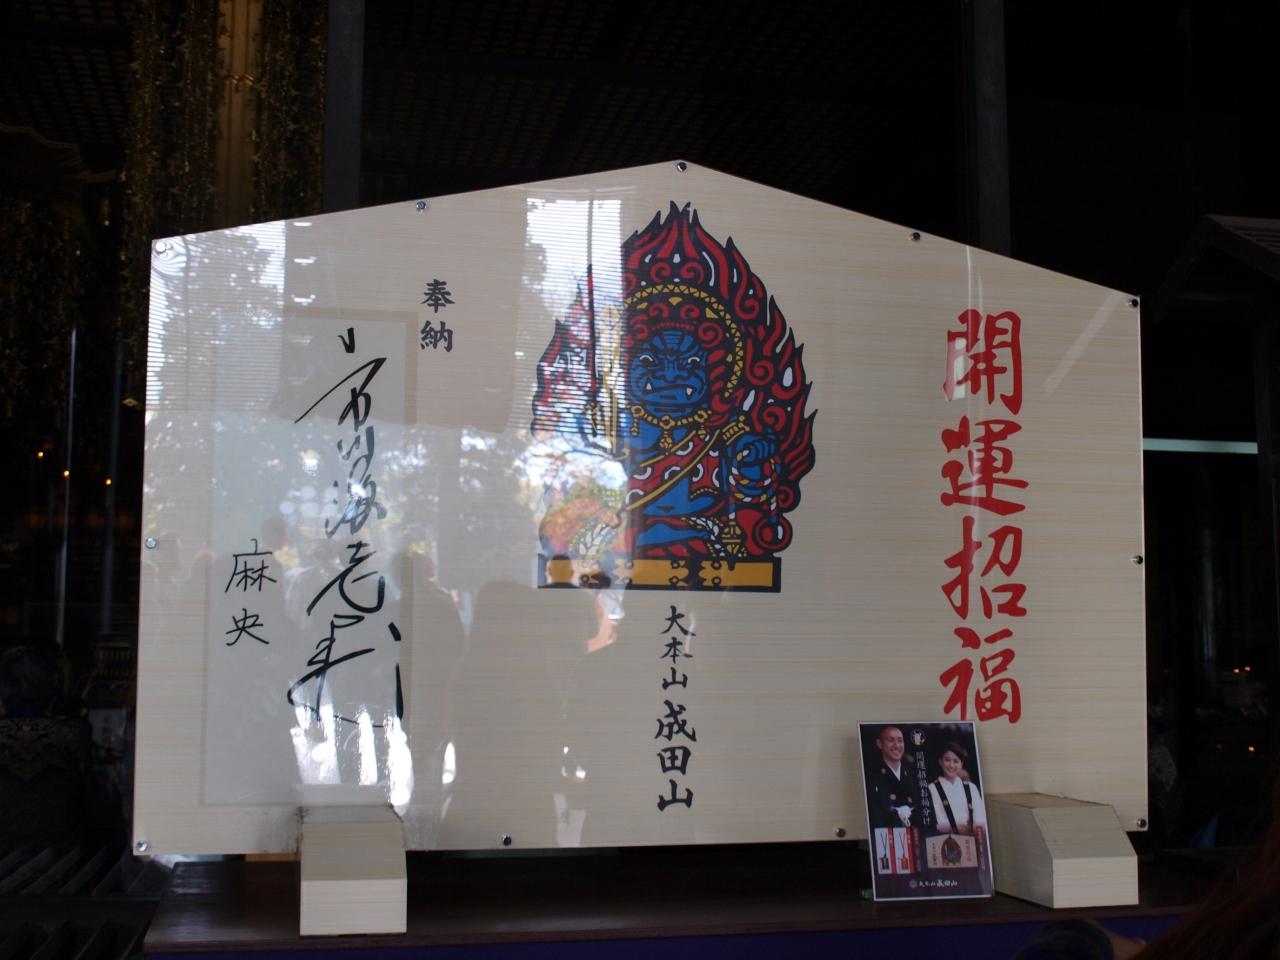 開運招福
大本山成田山
奉納
市川海老蔵
麻央
開運招福お福分け
大本山成田山